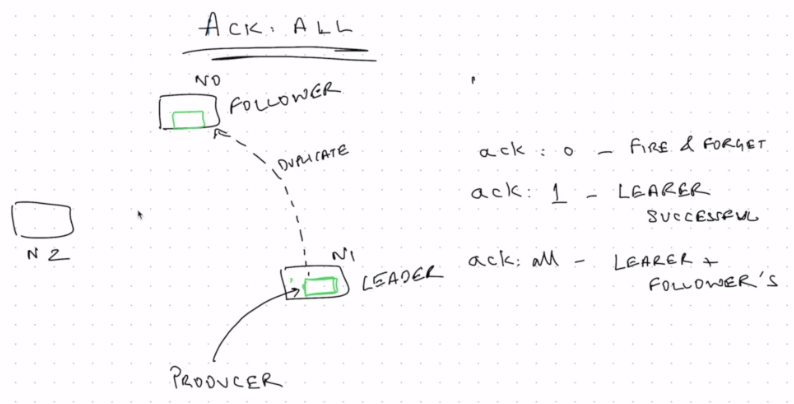 ACK: ALL
N0
FOLLOWER
DUPLICATE
N2
N1
LEADER
PRODUCER
ack : 0 - FIRE & FORGET
ack: 1 - LEARER
SUCCESSFUL
ack: all - LEARER +
FOLLOWER'S